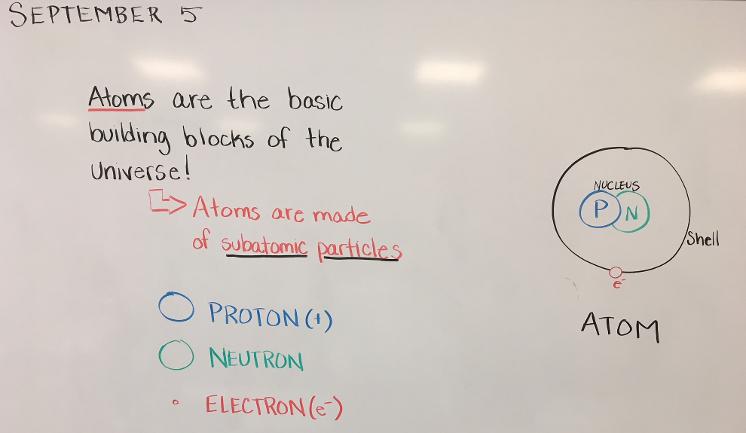 SEPTEMBER 5
Atoms are the basic
building blocks of the
Universe!
Atoms are made
of subatomic particles
PROTON (+)
NEUTRON
ELECTRON (e⁻)
NUCLEUS
P N
Shell
e⁻
ATOM